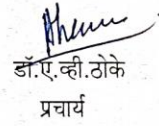 डॉ.ए.व्ही.ठोके
प्रचार्य